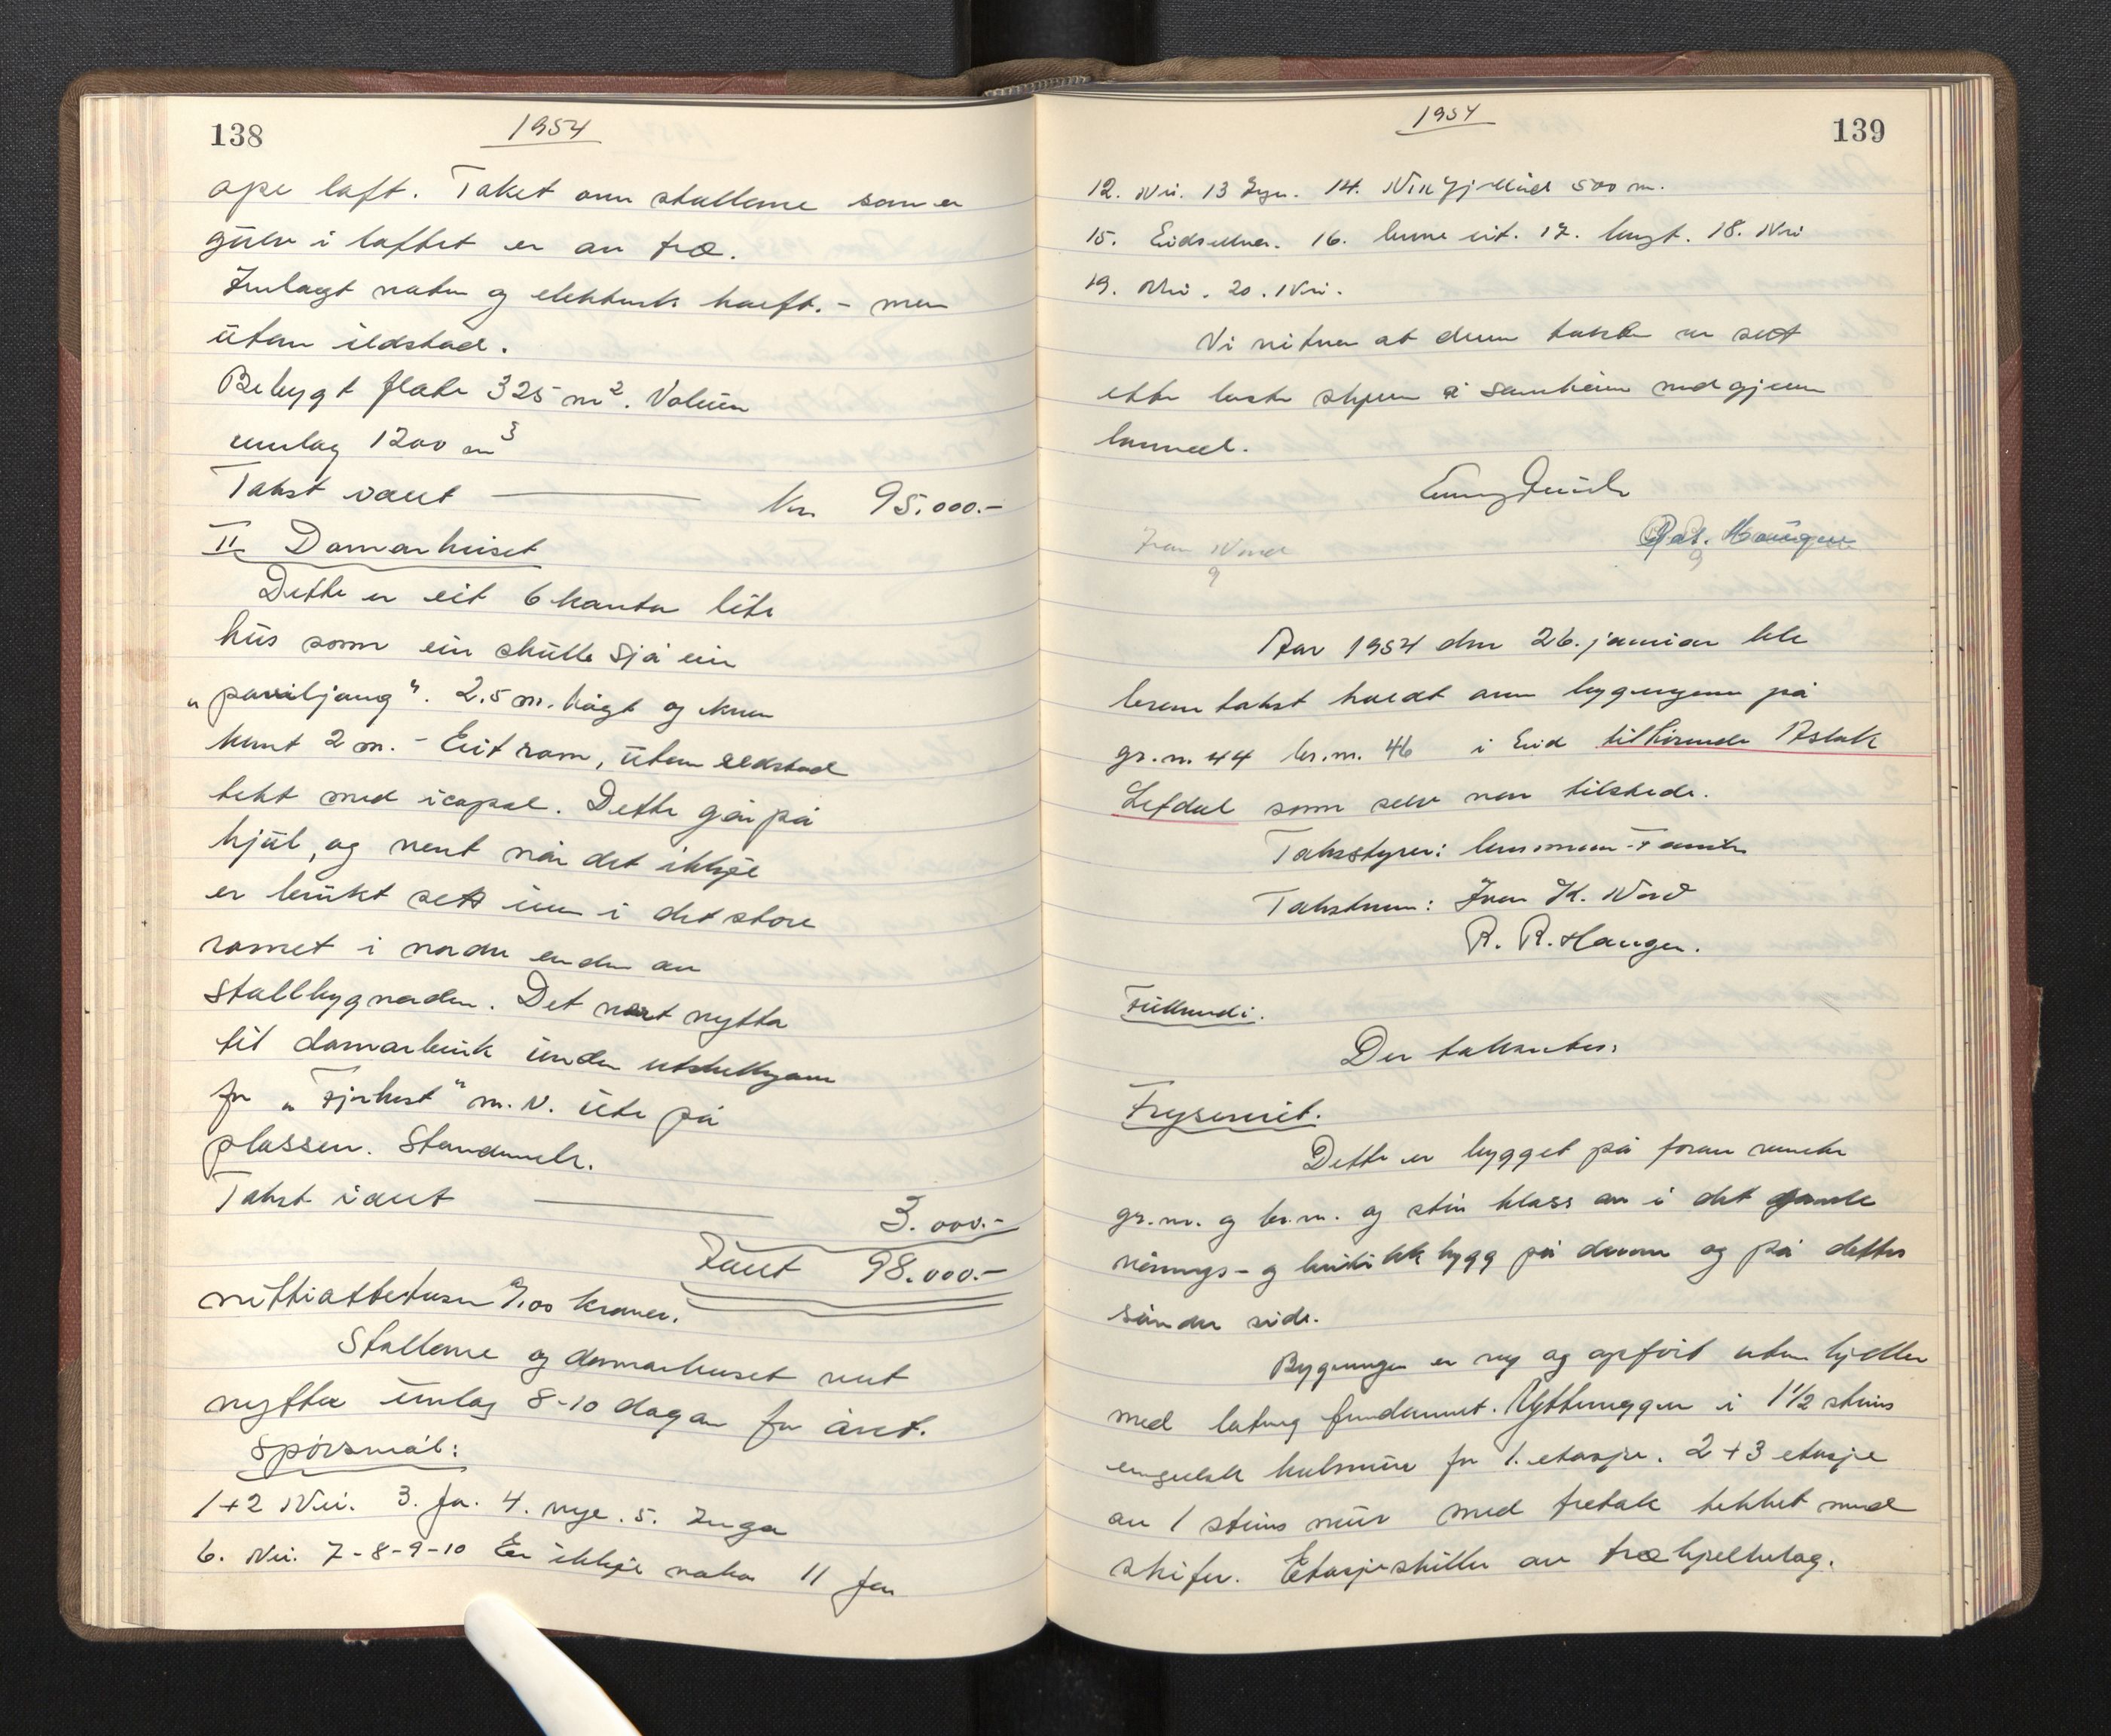 138
1954
ope loft. Taket om stallerne som er
gülv i loftet er av træ.
Innlagt vatn og elektrisk kraft. - men
ütan ildstad.
Bebygt flate 325 m². Volüm
umlag 1200 m³
Takst vart — kr. 95.000.-
II Domarhüset
Dette er eit 6 kanta lite
hüs som ein skülle sjå ein
"paviljong". 2,5 m. högt og kvar
kant 2 m. - Eit rom, ütan eldstad
tekt med icopal. Dette går på
hjül, og vert når det ikkje
er brükt sett inn i det store
romet i nordre enden av
stallbygnaden. Det vert nytta
til domarbrük ünder utstillingane
for "Fjorhest" m.v. üte på
plassen. Standmerk.
Takst vart — 3.000.-
Samt 98.000.-
nittiåttetusen 0/00 kroner.
Stallerne og domarhuset vert
nytta ümlag 8-10 dagar for året.
Spörsmål:
1+2 Nei. 3. Ja. 4. nye. 5. Inga
6. Nei. 7-8-9-10 Er ikkje nako 11 Ja
1954
139
12. Nei. 13 Ingen. 14. Nei 500 m.
15. 16. 17. 18. Nei
19. Nei. 20. Nei.
Vi vitner at denne takst er sett
ette beste skjøn i samheve med gjevn
lannad.
Ivar Nord
R. R. Haugen
Aar 1954 den 26. januar ble
branntakst holdt over bygningene på
gr.n. 44 br.n. 46 i Eid tilhörende Aslak
Lefdal som selv var tilstede.
Takststyrer: lensmann
Takstmenn: Ivar K. Nord
R. R. Haugen.
Füllmakt:
Der taksertes:
Fryseriet.
Dette er bygget på foran nevnte
gr.nr. og br.nr. og står klass av i det gamle
vånings- og butikkbygg på denne og på dettes
söndre side.
Bygningen er ny og opfört uten kjeller
med betong fundament. Yttervegger i 1 1/2 steins
engelsk hulmür for 1. etasje. 2 + 3 etasje
av 1 steins mür med tretak tekket med
skifer. Etasjeskiller av træbjelkelag.